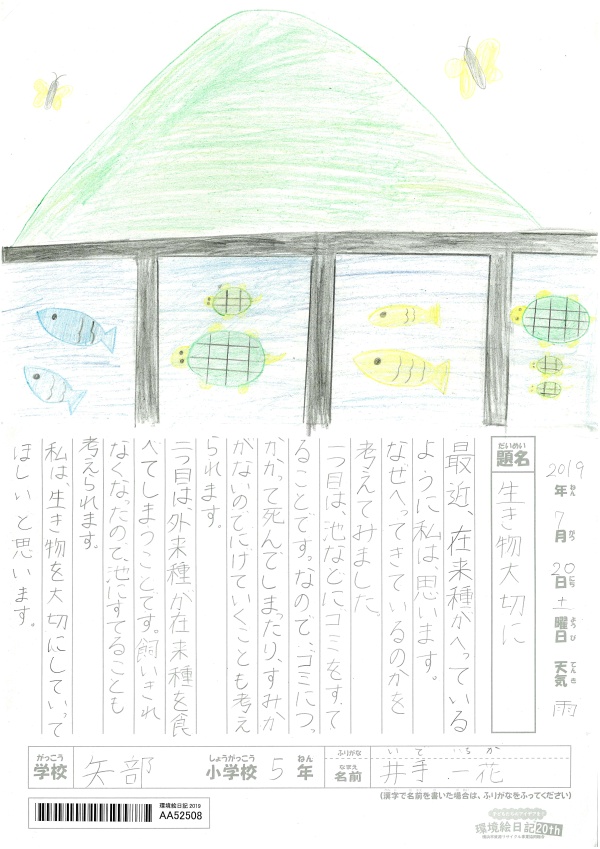 2019年7月20日土曜日 天気 雨
ねん がつ にち ようび てんき
だいめい
題名 生き物大切に
最近、在来種がへっている
ように私は、思います。
なぜへってきているのかを
考えてみました。
一つ目は、池などにゴミをすて
ることです。なので、ゴミにつっ
かかって死んでしまったり、すみか
がないのでにげていくことも考え
られます。
二つ目は、外来種が在来種を食
べてしまうことです。飼いきれ
なくなったので、池にすてることも
考えられます。
私は、生き物を大切にしていって
ほしいと思います。
がっこう しょうがっこう ねん
学校 矢部 小学校 5年
ふりがな いで いちか
なまえ
名前 井手 一花
(漢字で名前を書いた場合は、ふりがなをふってください)
環境絵日記 2019
AA52508
環境絵日記20th